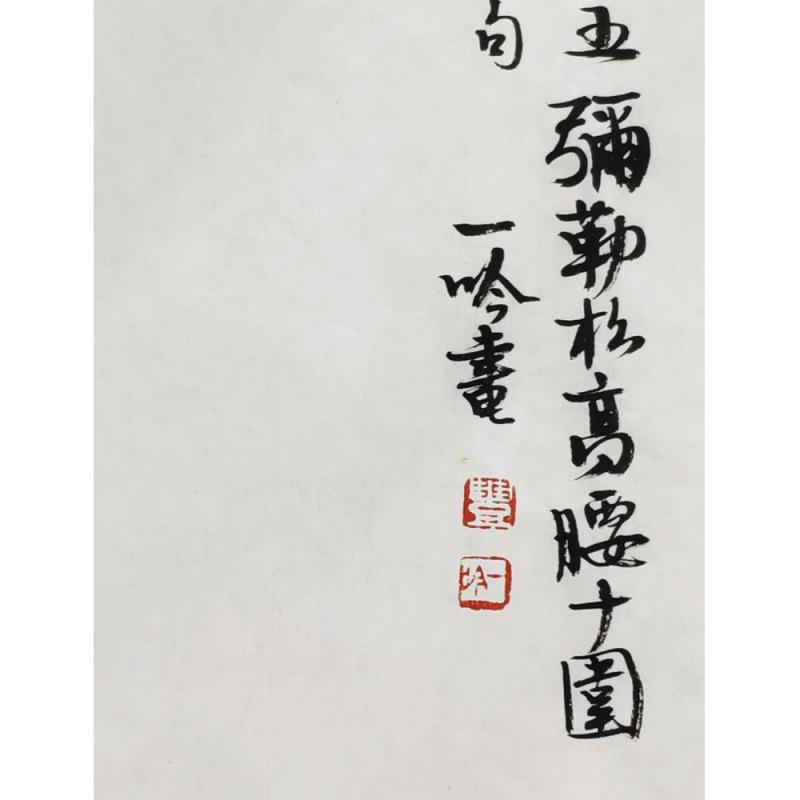 五彌勒松高腰十圍
句
一吟畫
豐
一吟